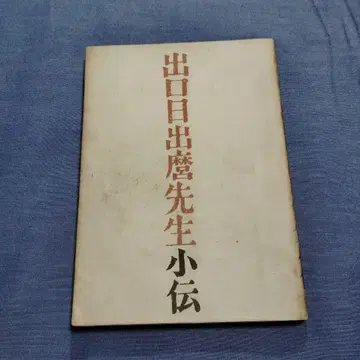 出口日出麿先生小伝